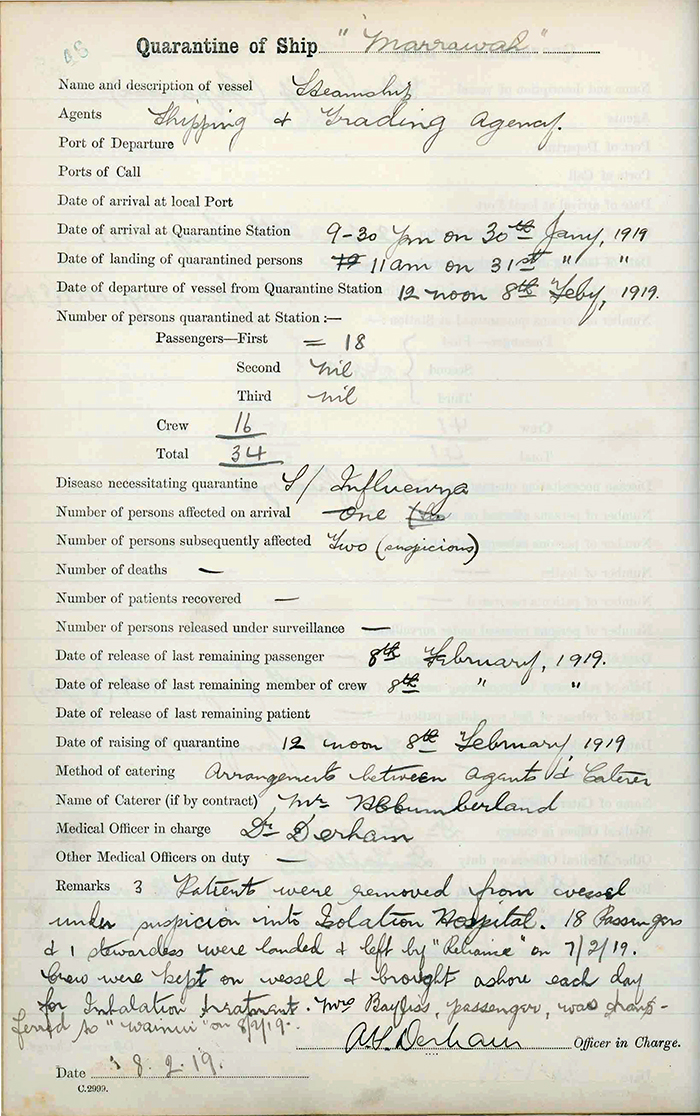 Quarantine of Ship "Marrawah"
Name and description of vessel Steamship
Agents Shipping & Trading Agency.
Port of Departure
Ports of Call
Date of arrival at local Port
Date of arrival at Quarantine Station 9-30 pm on 30th Jany, 1919
Date of landing of quarantined persons 11 am on 31st " "
Date of departure of vessel from Quarantine Station 12 noon 8th Feby, 1919.
Number of persons quarantined at Station :—
Passengers—First = 18
Second nil
Third nil
Crew 16
Total 34
Disease necessitating quarantine S/ Influenza
Number of persons affected on arrival One
Number of persons subsequently affected Two (suspicious)
Number of deaths —
Number of patients recovered —
Number of persons released under surveillance —
Date of release of last remaining passenger 8th February, 1919.
Date of release of last remaining member of crew 8th " "
Date of release of last remaining patient
Date of raising of quarantine 12 noon 8th February, 1919
Method of catering Arrangements between Agents & Caterer
Name of Caterer (if by contract) Cumberland
Medical Officer in charge Dr Derham
Other Medical Officers on duty —
Remarks 3 Patients were removed from vessel
under suspicion into Isolation Hospital. 18 Passengers
& 1 stewardess were landed & left by "Reliance" on 7/2/19.
Crew were kept on vessel & brought ashore each day
for Inhalation treatment. Mrs Bayliss, passenger, was trans-
ferred to "Wainui" on 8/2/19.
Derham Officer in Charge.
Date 8.2.19.
C.2999.